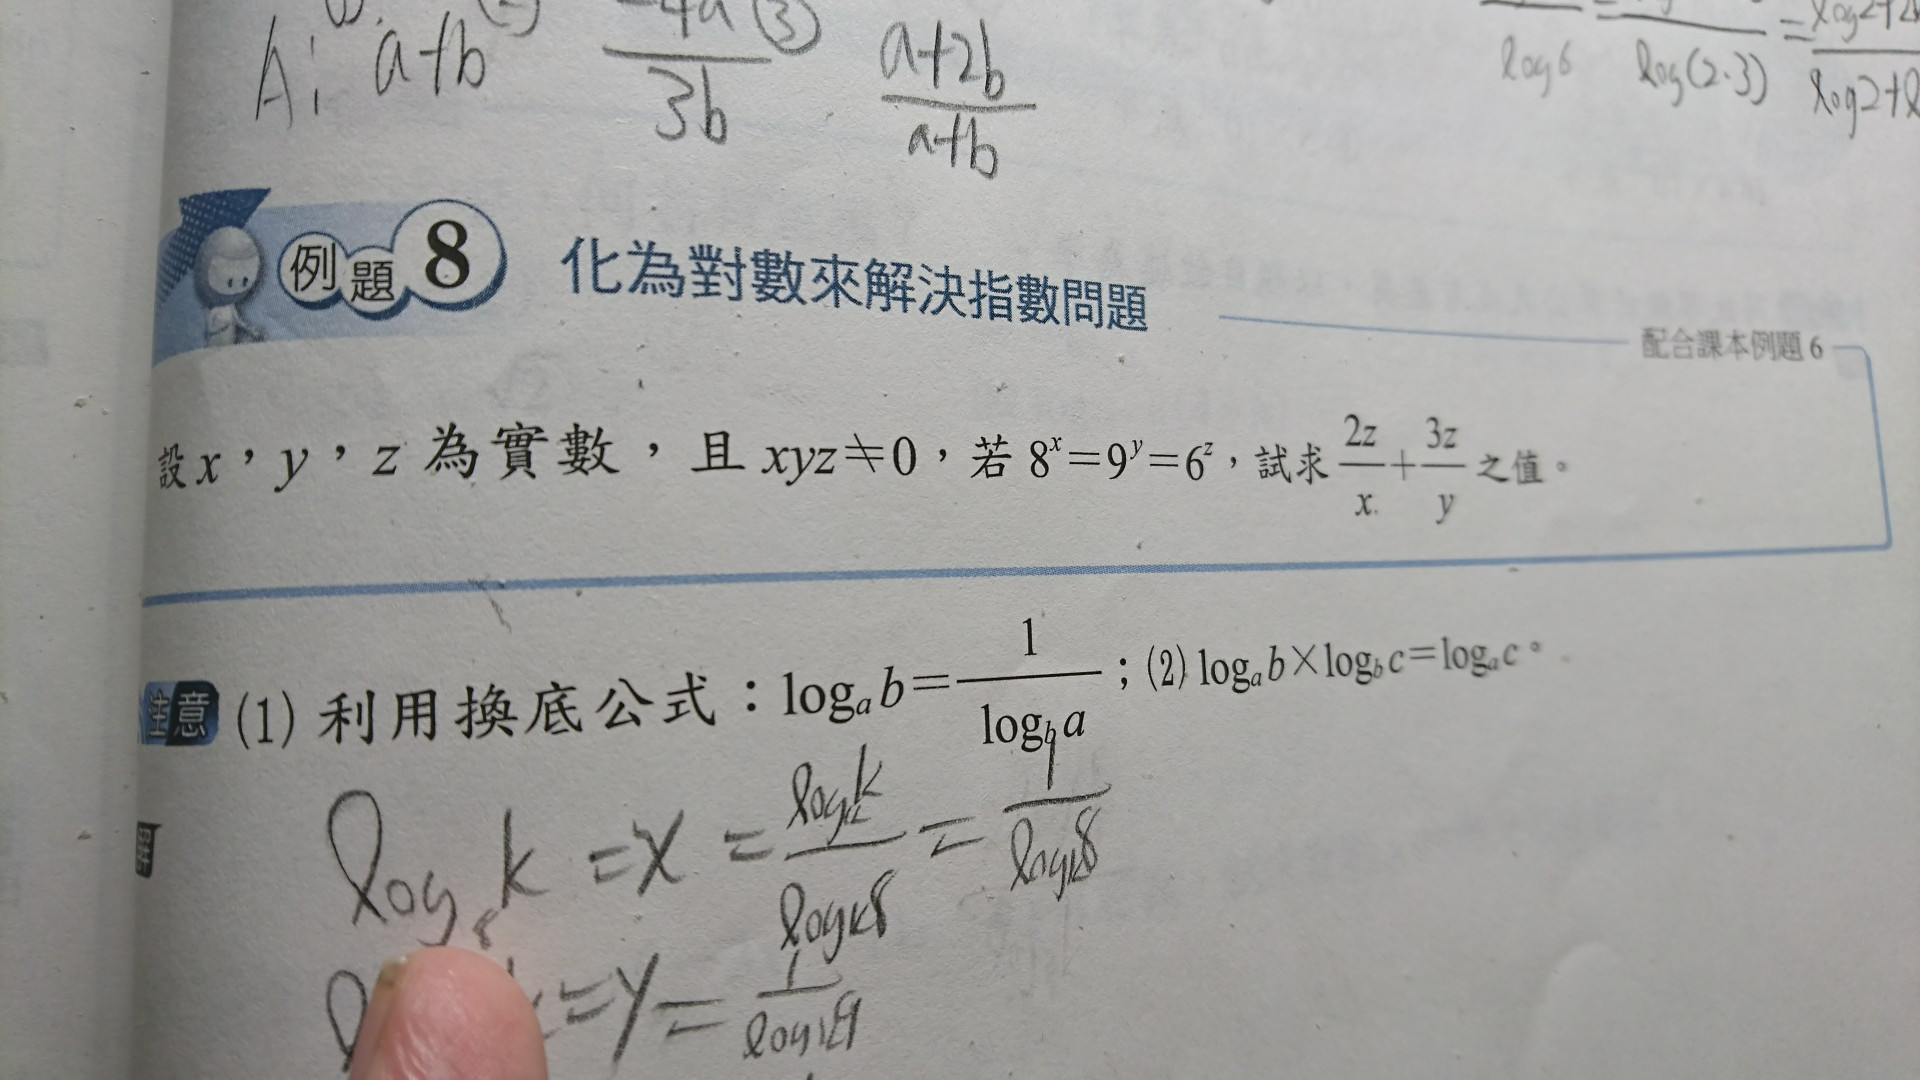 A: a+b -4a/3b (3) a+2b/a+b
log6 log(2·3) log2+
例題8 化為對數來解決指數問題
配合課本例題 6
設x,y,z 為實數,且 xyz≠0,若 8^x=9^y=6^z,試求 2z/x + 3z/y 之值。
注意 (1) 利用換底公式:log_a b = 1/log_b a;(2) log_a b×log_b c=log_a c。
log_8 k = x = log_k k/log_k 8 = 1/log_k 8
= y = 1/log_k 9